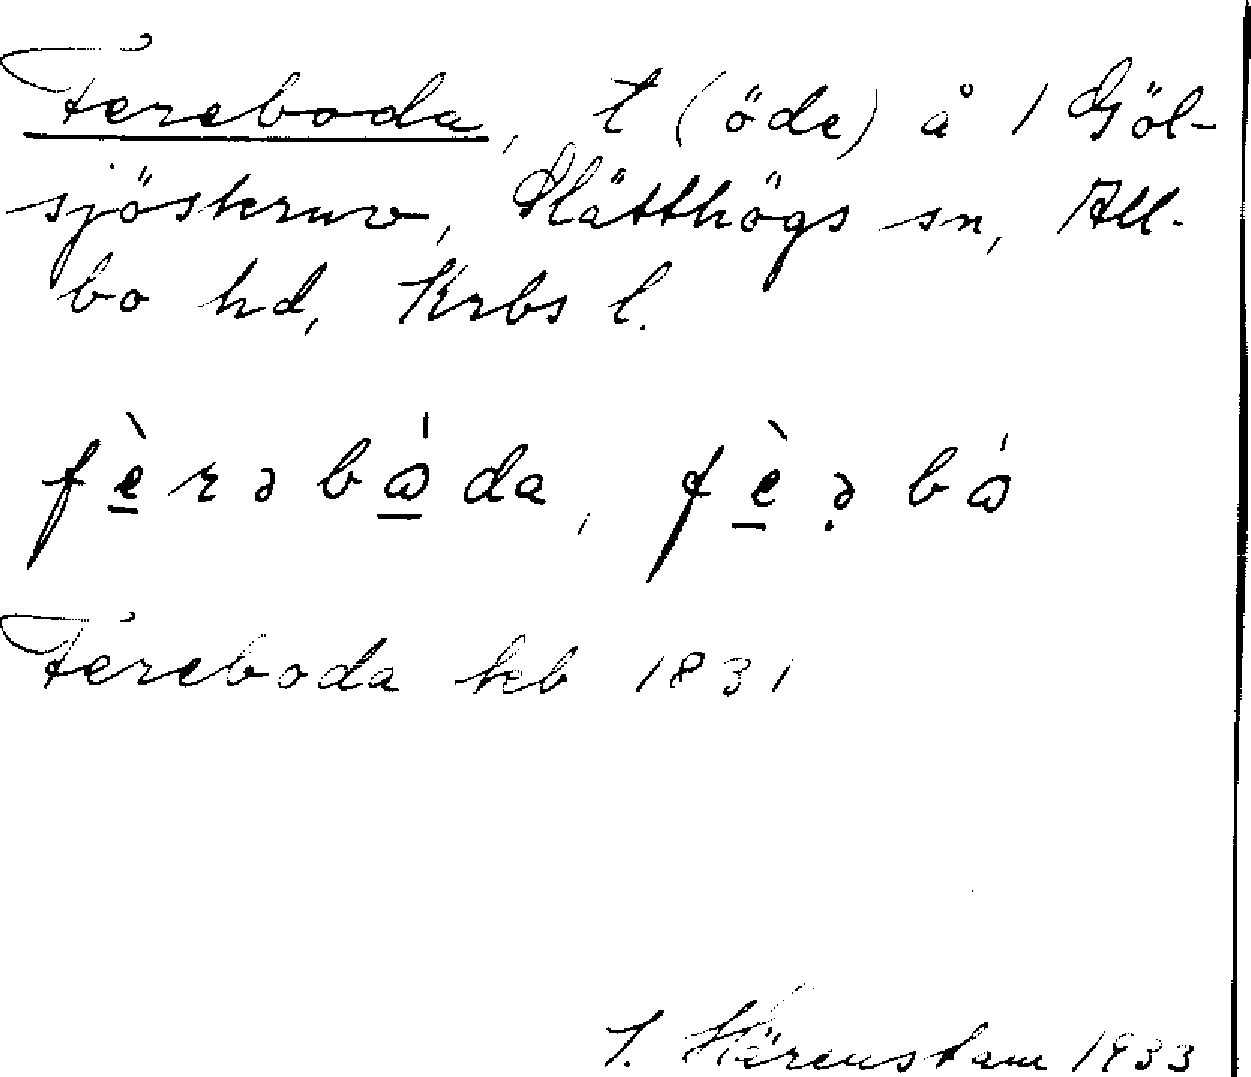 Fereboda, t (öde) å 1 Göl-
sjöskruv, Slätthögs sn, All-
bo hd, Krbs l.
fèrəbɷ́da, fèə̣bɷ́
Fereboda kb 1831
J. Härenstam 1933